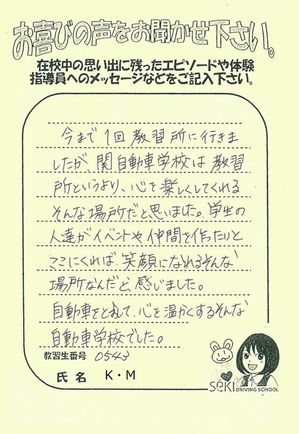 お喜びの声をお聞かせ下さい。
在校中の思い出に残ったエピソードや体験
指導員へのメッセージなどをご記入下さい。
今まで1回教習所に行きま
したが、関自動車学校は教習
所というより、心を楽しくしてくれる
そんな場所だと思いました。学生の
人達がイベントや仲間を作ったりと
ここにくれば笑顔になれるそんな
場所なんだと感じました。
自動車をとおして、心を温かくするそんな
自動車学校でした。
教習生番号 0543
氏名 K・M
SEKI
DRIVING SCHOOL